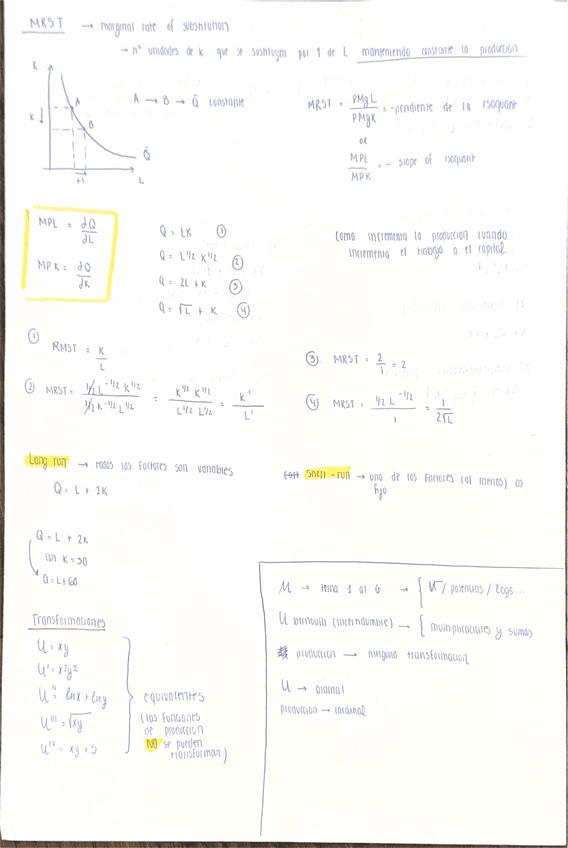 MRST → marginal rate of substitution
→ nº unidades de K que se sustituyen por 1 de L manteniendo constante la producción
K
A
B
K ↓
Q̄
+1
L
A → B → Q̄ constante
MRST = PMgL / PMgK = -pendiente de la isoquant
or
MPL / MPK = - slope of isoquant
MPL = ∂Q / ∂L
MPK = ∂Q / ∂K
Q = LK ①
Q = L^1/2 K^1/2 ②
Q = 2L + K ③
Q = √L + K ④
Como incrementa la producción cuando
incrementa el trabajo o el capital
① RMST = K / L
② MRST = 1/2 L^-1/2 K^1/2 / 1/2 K^-1/2 L^1/2 = K^1/2 K^1/2 / L^1/2 L^1/2 = K^1 / L^1
③ MRST = 2 / 1 = 2
④ MRST = 1/2 L^-1/2 / 1 = 1 / 2√L
Long run → todos los factores son variables
Q = L + 2K
Short-run → uno de los factores (al menos) es
fijo
Q = L + 2K
con K = 30
Q = L + 60
Transformaciones
U = xy
U' = x²y²
U'' = lnx + lny
U''' = √xy
U'''' = xy + 5
equivalentes
(las funciones
de producción
NO se pueden
transformar)
U → tema 1 al 6 → { √ / potencias / logs...
U bernoulli (incertidumbre) → { multiplicaciones y sumas
producción → ninguna transformación
U → ordinal
producción → cardinal